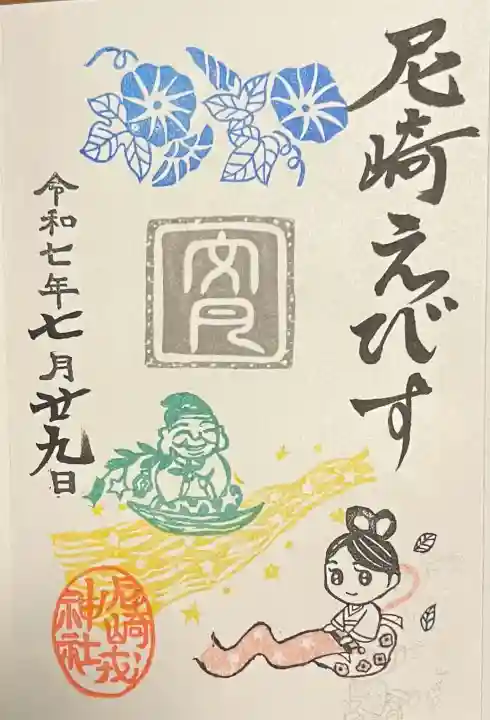 尼崎えびす
文月
令和七年七月廿九日
尼崎戎
神社